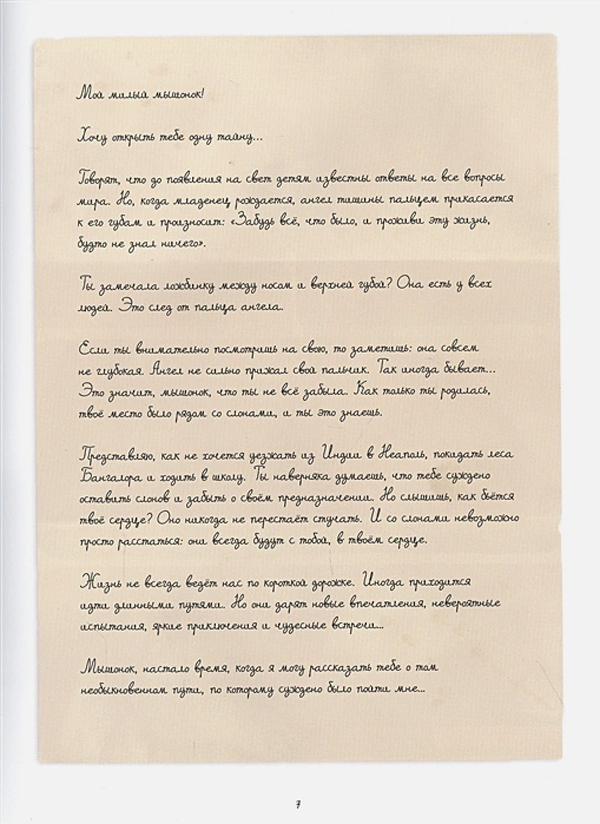 Мой милый мышонок!
Хочу открыть тебе одну тайну...
Говорят, что до появления на свет детям известны ответы на все вопросы
мира. Но, когда младенец рождается, ангел тишины пальцем прикасается
к его губам и произносит: «Забудь всё, что было, и проживи эту жизнь,
будто не знал ничего».
Ты замечала ложбинку между носом и верхней губой? Она есть у всех
людей. Это след от пальца ангела.
Если ты внимательно посмотришь на свою, то заметишь: она совсем
не глубокая. Ангел не сильно прижал свой пальчик. Так иногда бывает...
Это значит, мышонок, что ты не всё забыла. Как только ты родилась,
твоё место было рядом со слонами, и ты это знаешь.
Представляю, как не хочется уезжать из Индии в Неаполь, покидать леса
Бангалора и ходить в школу. Ты наверняка думаешь, что тебе суждено
оставить слонов и забыть о своём предназначении. Но слышишь, как бьётся
твоё сердце? Оно никогда не перестаёт стучать. И со слонами невозможно
просто расстаться: они всегда будут с тобой, в твоём сердце.
Жизнь не всегда ведёт нас по короткой дорожке. Иногда приходится
идти длинными путями. Но они дарят новые впечатления, невероятные
испытания, яркие приключения и чудесные встречи...
Мышонок, настало время, когда я могу рассказать тебе о том
необыкновенном пути, по которому суждено было пойти мне...
7